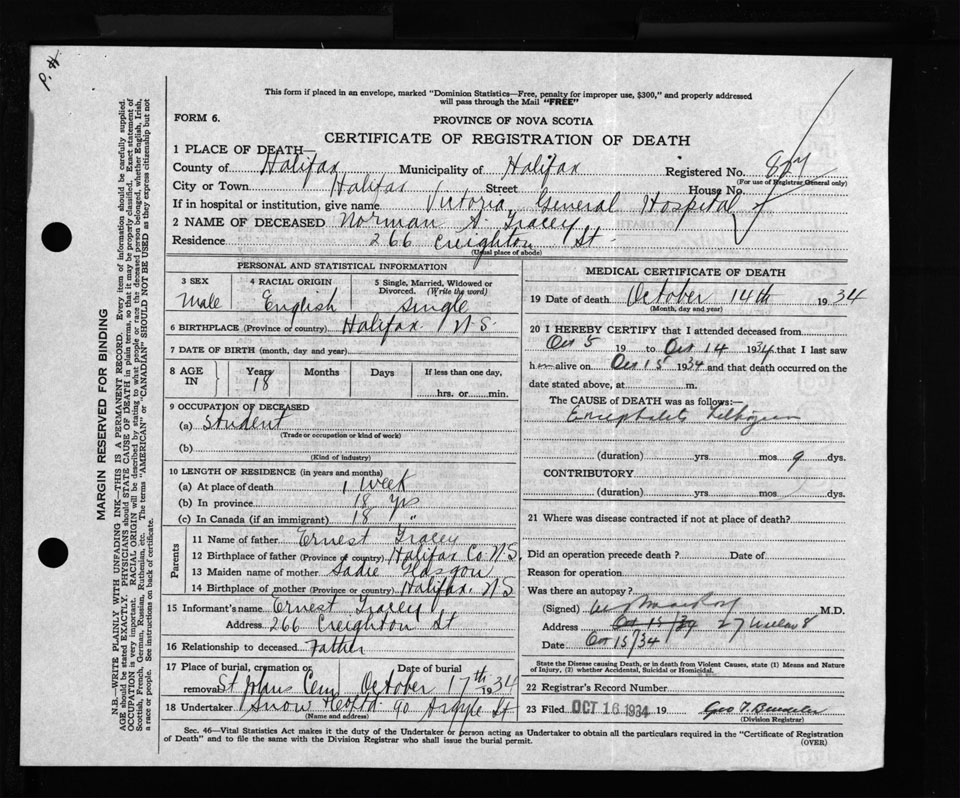 P. H.
This form if placed in an envelope, marked "Dominion Statistics—Free, penalty for improper use, $300," and properly addressed
will pass through the Mail "FREE"
FORM 6.
PROVINCE OF NOVA SCOTIA
CERTIFICATE OF REGISTRATION OF DEATH
1 PLACE OF DEATH—
County of Halifax Municipality of Halifax Registered No.
(For use of Registrar General only)
City or Town Halifax Street House No.
If in hospital or institution, give name Victoria General Hospital
2 NAME OF DECEASED Norman S. Tracey
Residence 266 Creighton St.
(Usual place of abode)
PERSONAL AND STATISTICAL INFORMATION
3 SEX 4 RACIAL ORIGIN 5 Single, Married, Widowed or
Divorced. (Write the word)
Male English Single
6 BIRTHPLACE (Province or country) Halifax N.S.
7 DATE OF BIRTH (month, day and year)
8 AGE IN Years Months Days If less than one day,
18 hrs. or min.
9 OCCUPATION OF DECEASED
(a) Student
(Trade or occupation or kind of work)
(b)
(Kind of industry)
10 LENGTH OF RESIDENCE (in years and months)
(a) At place of death 1 week
(b) In province 18 yrs
(c) In Canada (if an immigrant) 18 "
Parents
11 Name of father Ernest Tracey
12 Birthplace of father (Province or country) Halifax Co N.S.
13 Maiden name of mother Sadie Glasgow
14 Birthplace of mother (Province or country) Halifax. N S
15 Informant's name Ernest Tracey
Address 266 Creighton St
16 Relationship to deceased Father
17 Place of burial, cremation or Date of burial
removal St Johns Cem October 17th 1934
18 Undertaker Snow & Co Ltd 90 Argyle St
(Name and address)
MEDICAL CERTIFICATE OF DEATH
19 Date of death October 14th 1934
(Month, day and year)
20 I HEREBY CERTIFY that I attended deceased from
Oct 5 19 to Oct 14 1934 that I last saw
h alive on Oct 15 1934 and that death occurred on the
date stated above, at m.
The CAUSE of DEATH was as follows:—
Encephalitis
(duration) yrs. mos 9 dys.
CONTRIBUTORY
(duration) yrs. mos dys.
21 Where was disease contracted if not at place of death?
Did an operation precede death ? Date of
Reason for operation
Was there an autopsy?
(Signed) M.D.
Address Oct 15/34 27
Date Oct 15/34
State the Disease causing Death, or in death from Violent Causes, state (1) Means and Nature
of Injury, (2) whether Accidental, Suicidal or Homicidal.
22 Registrar's Record Number
23 Filed OCT 16 1934 19 Geo T.
(Division Registrar)
Sec. 46—Vital Statistics Act makes it the duty of the Undertaker or person acting as Undertaker to obtain all the particulars required in the "Certificate of Registration
of Death" and to file the same with the Division Registrar who shall issue the burial permit.
(OVER)
MARGIN RESERVED FOR BINDING
N.B.—WRITE PLAINLY WITH UNFADING INK—THIS IS A PERMANENT RECORD. Every item of information should be carefully supplied.
AGE should be stated EXACTLY. PHYSICIANS should STATE CAUSE OF DEATH in plain terms, so that it may be properly classified. Exact statement of
OCCUPATION is very important. RACIAL ORIGIN will be described by stating to what people or race the deceased person belonged, whether English, Irish,
Scottish, French, German, Russian, Ruthenian, etc. The terms "AMERICAN" or "CANADIAN" SHOULD NOT BE USED as they express citizenship but not
a race or people. See instructions on back of certificate.